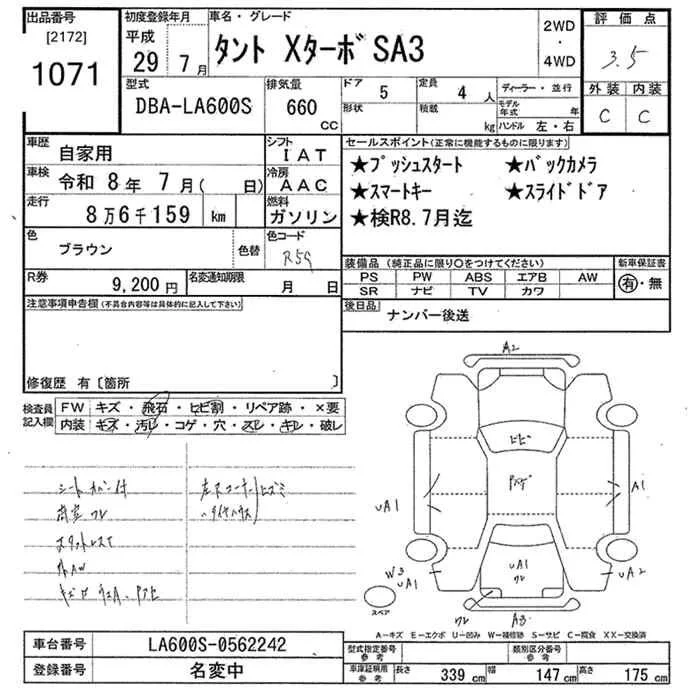 出品番号
[2172]
1071
初度登録年月
平成
29 7月
車名・グレード
タント Xターボ SA3
2WD
・
4WD
評価点
3.5
外装 内装
C C
型式
DBA-LA600S
排気量
660
CC
ドア 5
形状
定員 4 人
積載 kg
ディーラー・並行
モデル年式 年
ハンドル 左・右
車歴 自家用
シフト IAT
車検 令和 8年 7月( 日)
冷房 AAC
走行 8万6千159 km
燃料 ガソリン
色 ブラウン
色替
色コード
R59
R券 9,200円
名変通知期限 月 日
セールスポイント(正常に機能するものに限ります)
★プッシュスタート ★バックカメラ
★スマートキー ★スライドドア
★検R8.7月迄
装備品(純正品に限り○をつけてください)
PS PW ABS エアB AW
SR ナビ TV カワ
新車保証書
有・無
後日品
ナンバー後送
注意事項申告欄(不具合内容等は具体的に記入して下さい)
修復歴 有〔箇所 〕
検査員記入欄
FW キズ・飛石・ヒビ割・リペア跡・×要
内装 キズ・汚レ・コゲ・穴・スレ・キレ・破レ
シートカバー付
外AW
A2
ヒビ
UA1
A1
UA1
UA2
W3
UA1
スペア
A3
A―キズ E―エクボ U―凹み W―補修跡 S―サビ C―腐食 XX―交換済
車台番号 LA600S-0562242
登録番号 名変中
型式指定番号
参考
類別区分番号
参考
車庫証明用
参考
長さ 339 cm 幅 147 cm 高さ 175 cm